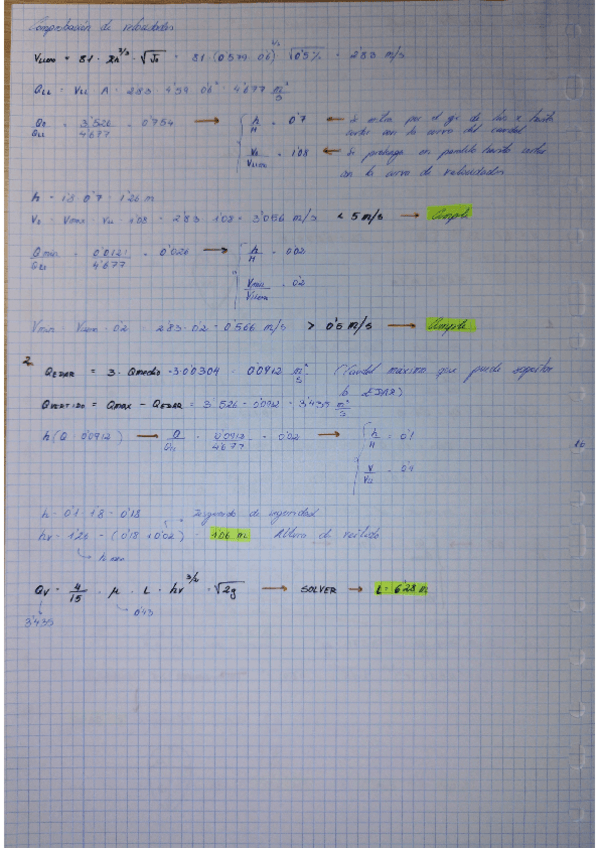 Comprobación de velocidades
V_LLENO = 81 · Rh^2/3 · √Jo = 81 · (0'579 · 0'6)^2/3 · √0'5% = 2'83 m/s
Q_LL = V_LL · A = 2'83 · 4'59 · 0'6² = 4'677 m³/s
Q_P/Q_LL = 3'526/4'677 = 0'754 → h/H = 0'7 ← Se entra por el eje de las x hasta
cortar con la curva del caudal
V_P/V_LLENO = 1'08 ← Se prolonga en paralelo hasta cortar
con la curva de velocidades
h = 1'8 · 0'7 = 1'26 m
= 2'83 · 1'08 = 3'056 m/s < 5 m/s → Cumple
Q min/Q_LL = 0'0121/4'677 = 0'026 → h/H = 0'02
Vmin/V_LLENO = 0'2
Vmin = V_LLENO · 0'2 = 2'83 · 0'2 = 0'566 m/s > 0'5 m/s → Cumple
2. Q_EDAR = 3 · Q_MEDIO = 3 · 0'0304 = 0'0912 m³/s (Caudal máximo que puede soportar
la EDAR)
Q_VERTIDO = Qmax - Q_EDAR = 3'526 - 0'0912 = 3'435 m³/s
h (Q = 0'0912) → Q/Q_LL = 0'0912/4'677 = 0'02 → h/H = 0'1
V/V_LL = 0'4
h = 0'1 · 1'8 = 0'18 Resguardo de seguridad
hv = 1'26 - (0'18 + 0'02) = 1'06 m Altura de vertido
h max
Qv = 4/15 · μ · L · hv^3/2 · √2g → SOLVER → L = 6'28 m
3'435 0'43